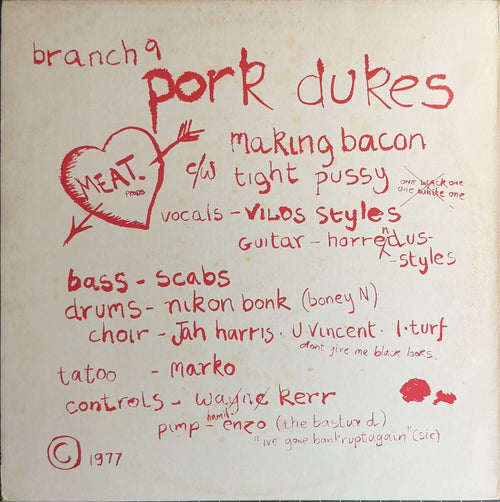 branch 9
pork dukes
MEAT.
PRODS
making bacon
c/w tight pussy
one black one
one white one
vocals - VILOS styles
Guitar - horrendus-
-styles
bass - scabs
drums - nikon bonk (boney N)
choir - Jah harris. U Vincent. I. turf
dont give me black looks.
tatoo - marko
controls - wayne kerr
pimp - hamil enzo (the basturd)
"ive gone bankruptagain" (sic)
© 1977